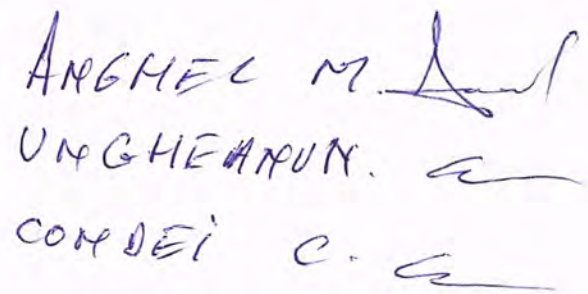 ANGHEL M.
UNGHEANU N.
CONDEI C.